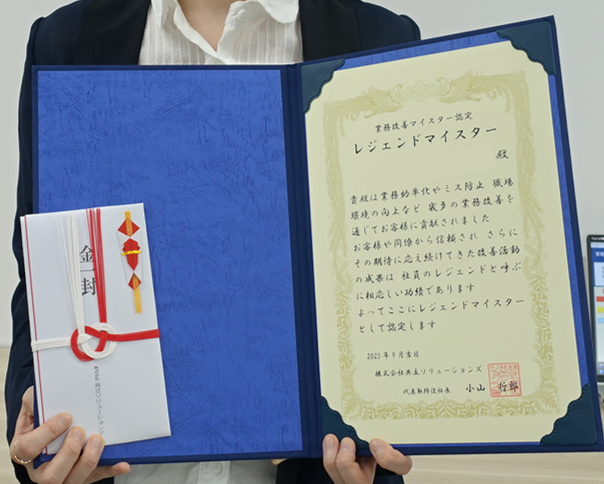 業務改善マイスター認定
レジェンドマイスター
殿
貴殿は業務効率化やミス防止 職場
環境の向上など 幾多の業務改善を
通じてお客様に貢献されました
お客様や同僚から信頼され さらに
その期待に応え続けてきた改善活動
の成果は 社員のレジェンドと呼ぶ
に相応しい功績であります
よってここにレジェンドマイスター
として認定します
2025年9月吉日
株式会社共立ソリューションズ
代表取締役社長 小山 哲郎
金一封
株式会社 共立ソリューションズ